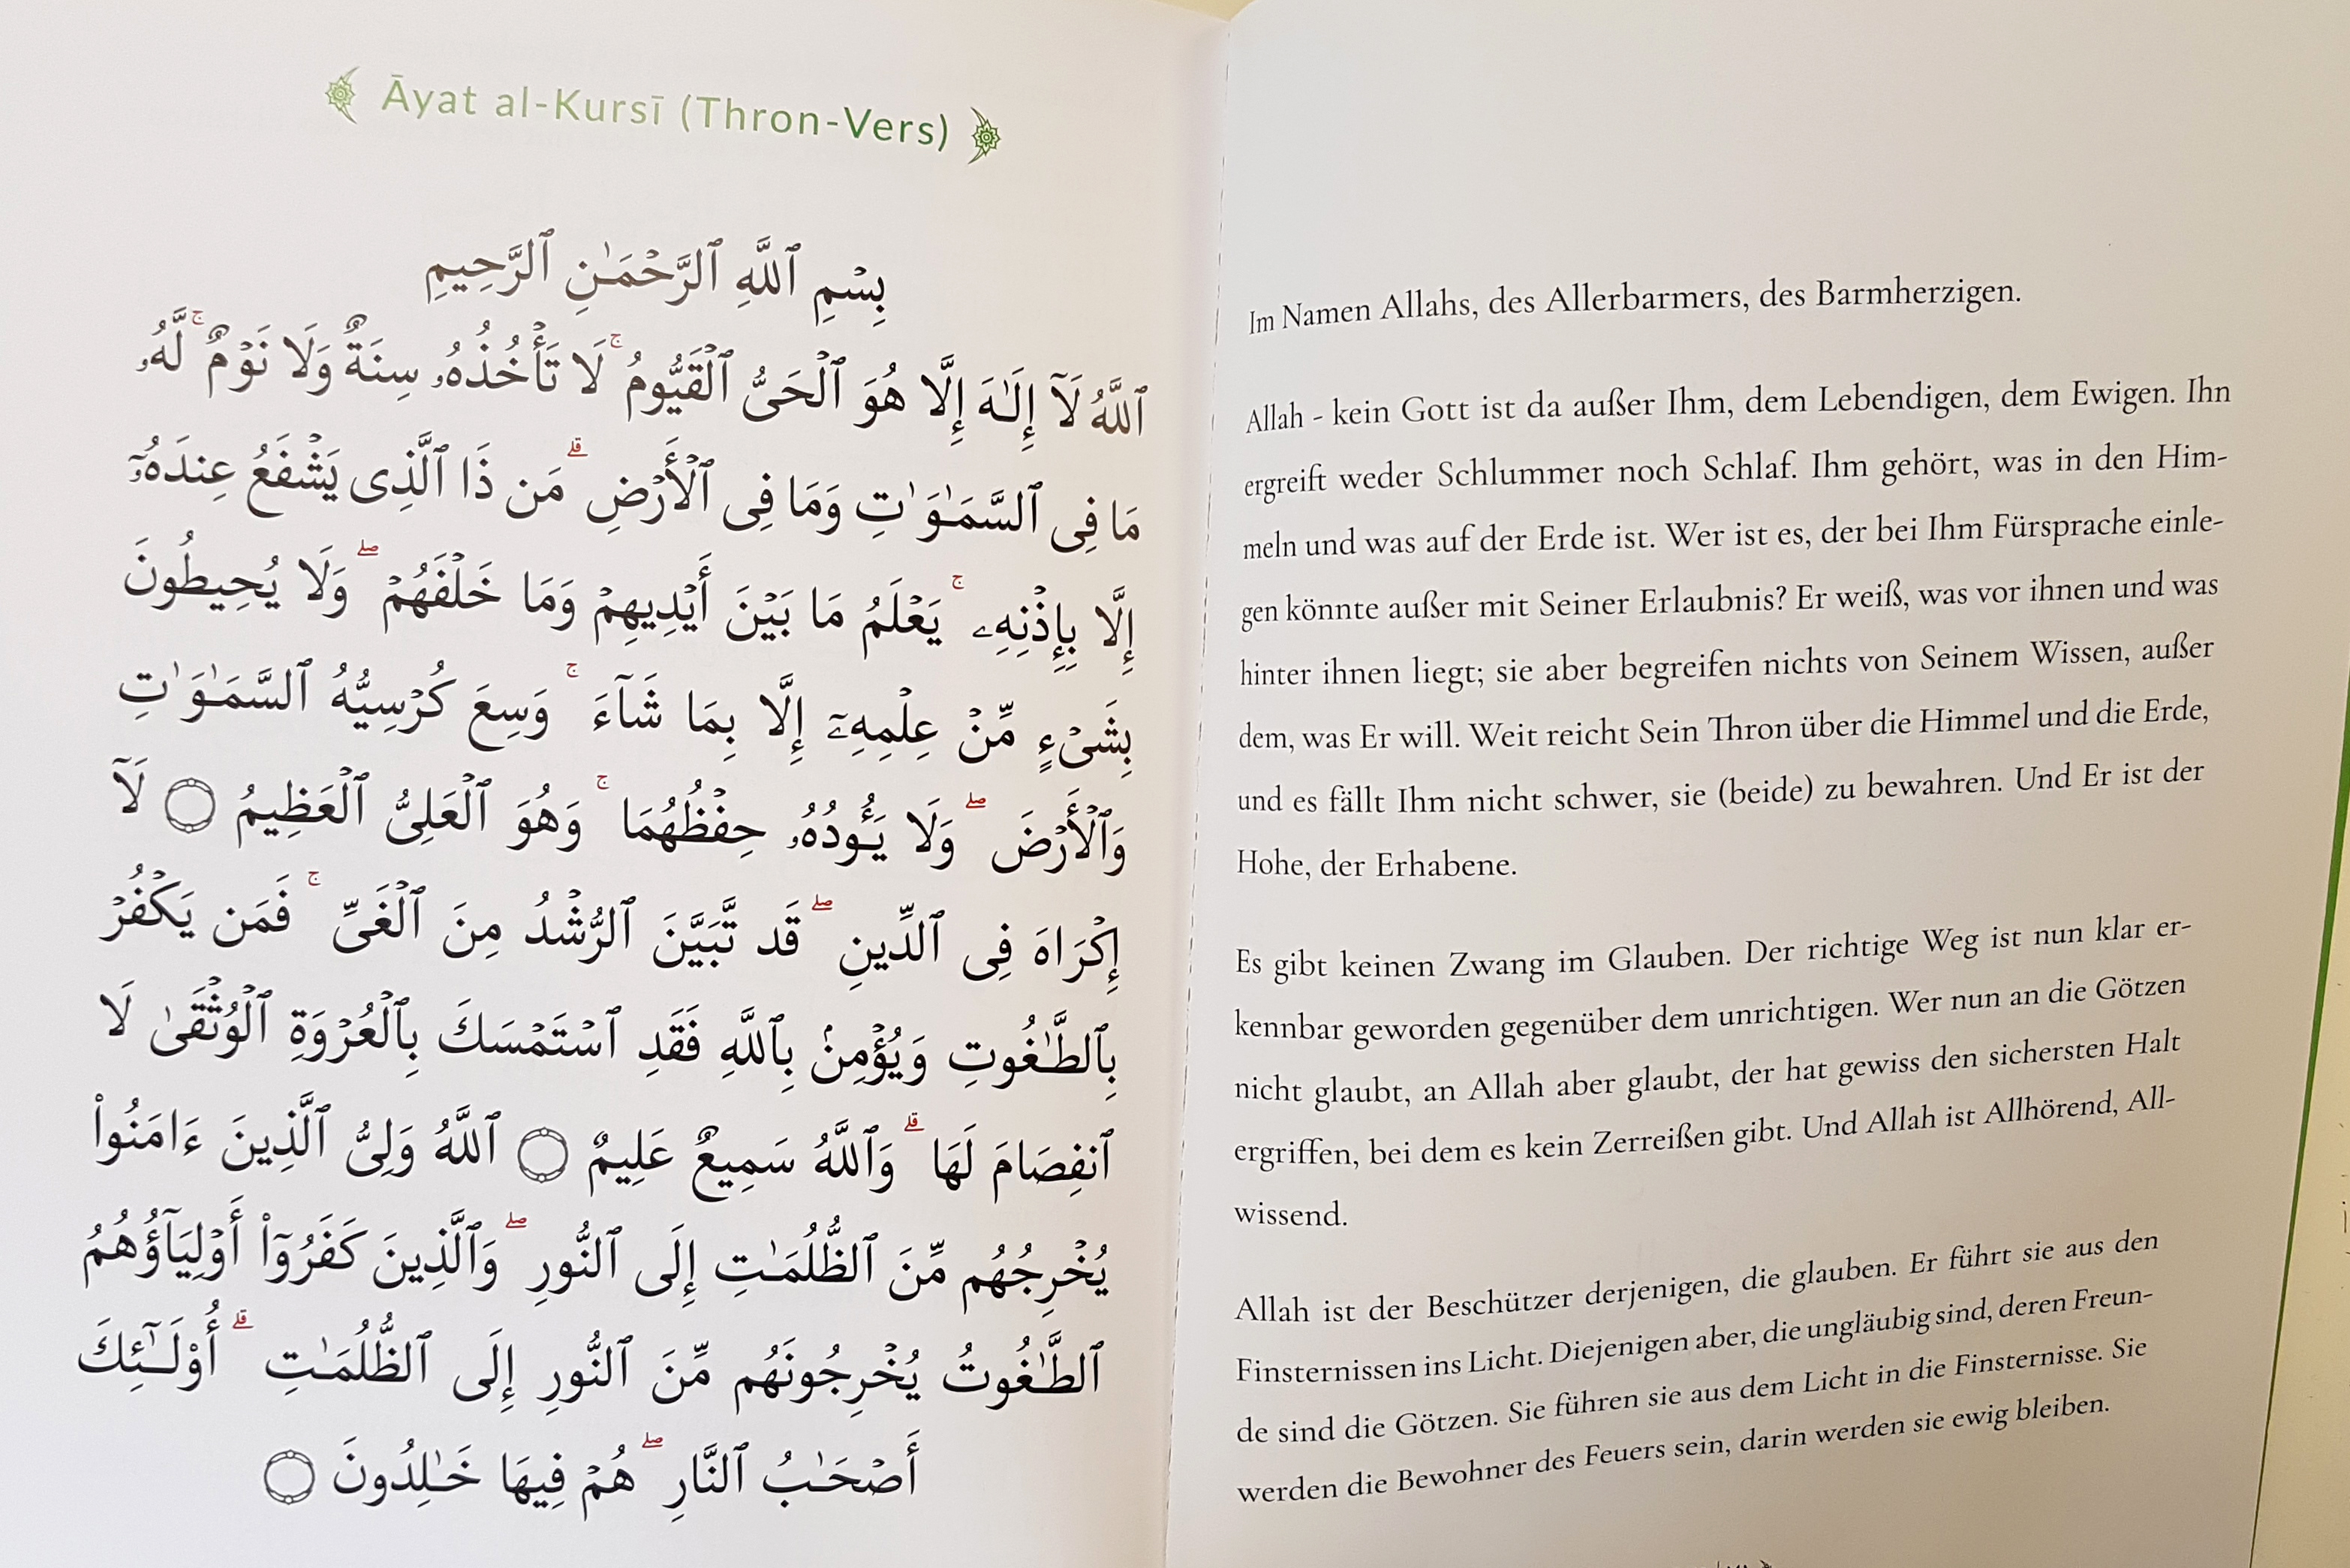 Āyat al-Kursī (Thron-Vers)
بِسۡمِ ٱللَّهِ ٱلرَّحۡمَـٰنِ ٱلرَّحِيمِ
ٱللَّهُ لَآ إِلَـٰهَ إِلَّا هُوَ ٱلۡحَىُّ ٱلۡقَيُّومُ ۚ لَا تَأۡخُذُهُۥ سِنَةٌ وَلَا نَوۡمٌ ۚ لَّهُۥ
مَا فِى ٱلسَّمَـٰوَٰتِ وَمَا فِى ٱلۡأَرۡضِ ۗ مَن ذَا ٱلَّذِى يَشۡفَعُ عِندَهُۥٓ
إِلَّا بِإِذۡنِهِۦ ۚ يَعۡلَمُ مَا بَيۡنَ أَيۡدِيهِمۡ وَمَا خَلۡفَهُمۡ ۖ وَلَا يُحِيطُونَ
بِشَىۡءٍ مِّنۡ عِلۡمِهِۦٓ إِلَّا بِمَا شَآءَ ۚ وَسِعَ كُرۡسِيُّهُ ٱلسَّمَـٰوَٰتِ
وَٱلۡأَرۡضَ ۖ وَلَا يَـُٔودُهُۥ حِفۡظُهُمَا ۚ وَهُوَ ٱلۡعَلِىُّ ٱلۡعَظِيمُ ۝ لَآ
إِكۡرَاهَ فِى ٱلدِّينِ ۖ قَد تَّبَيَّنَ ٱلرُّشۡدُ مِنَ ٱلۡغَىِّ ۚ فَمَن يَكۡفُرۡ
بِٱلطَّـٰغُوتِ وَيُؤۡمِنۢ بِٱللَّهِ فَقَدِ ٱسۡتَمۡسَكَ بِٱلۡعُرۡوَةِ ٱلۡوُثۡقَىٰ لَا
ٱنفِصَامَ لَهَا ۗ وَٱللَّهُ سَمِيعٌ عَلِيمٌ ۝ ٱللَّهُ وَلِىُّ ٱلَّذِينَ ءَامَنُواْ
يُخۡرِجُهُم مِّنَ ٱلظُّلُمَـٰتِ إِلَى ٱلنُّورِ ۖ وَٱلَّذِينَ كَفَرُوٓاْ أَوۡلِيَآؤُهُمُ
ٱلطَّـٰغُوتُ يُخۡرِجُونَهُم مِّنَ ٱلنُّورِ إِلَى ٱلظُّلُمَـٰتِ ۗ أُوْلَـٰٓئِكَ
أَصۡحَـٰبُ ٱلنَّارِ ۖ هُمۡ فِيهَا خَـٰلِدُونَ ۝
Im Namen Allahs, des Allerbarmers, des Barmherzigen.
Allah - kein Gott ist da außer Ihm, dem Lebendigen, dem Ewigen. Ihn
ergreift weder Schlummer noch Schlaf. Ihm gehört, was in den Him-
meln und was auf der Erde ist. Wer ist es, der bei Ihm Fürsprache einle-
gen könnte außer mit Seiner Erlaubnis? Er weiß, was vor ihnen und was
hinter ihnen liegt; sie aber begreifen nichts von Seinem Wissen, außer
dem, was Er will. Weit reicht Sein Thron über die Himmel und die Erde,
und es fällt Ihm nicht schwer, sie (beide) zu bewahren. Und Er ist der
Hohe, der Erhabene.
Es gibt keinen Zwang im Glauben. Der richtige Weg ist nun klar er-
kennbar geworden gegenüber dem unrichtigen. Wer nun an die Götzen
nicht glaubt, an Allah aber glaubt, der hat gewiss den sichersten Halt
ergriffen, bei dem es kein Zerreißen gibt. Und Allah ist Allhörend, All-
wissend.
Allah ist der Beschützer derjenigen, die glauben. Er führt sie aus den
Finsternissen ins Licht. Diejenigen aber, die ungläubig sind, deren Freun-
de sind die Götzen. Sie führen sie aus dem Licht in die Finsternisse. Sie
werden die Bewohner des Feuers sein, darin werden sie ewig bleiben.